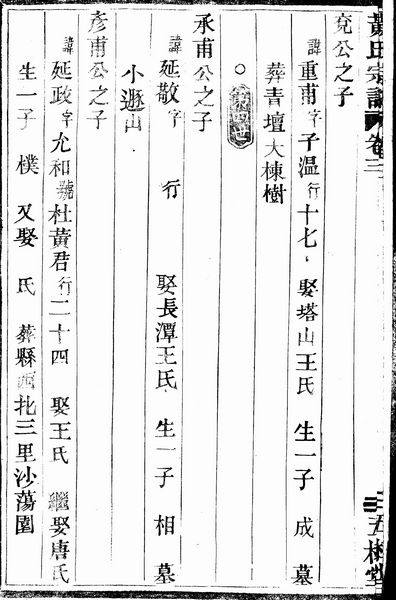 黃氏宗譜 卷三 五桂堂
公之子
諱重甫字子溫行十七、娶塔山王氏 生一子 成 墓
葬青壇大棟樹
○ 世
承甫公之子
諱延敬字 行 娶長潭王氏 生一子 相 墓
小遯山
彥甫公之子
諱延政字允和號杜黃君行二十四 娶王氏 繼娶唐氏
生一子 樸 又娶 氏 葬縣西北三里沙蕩園